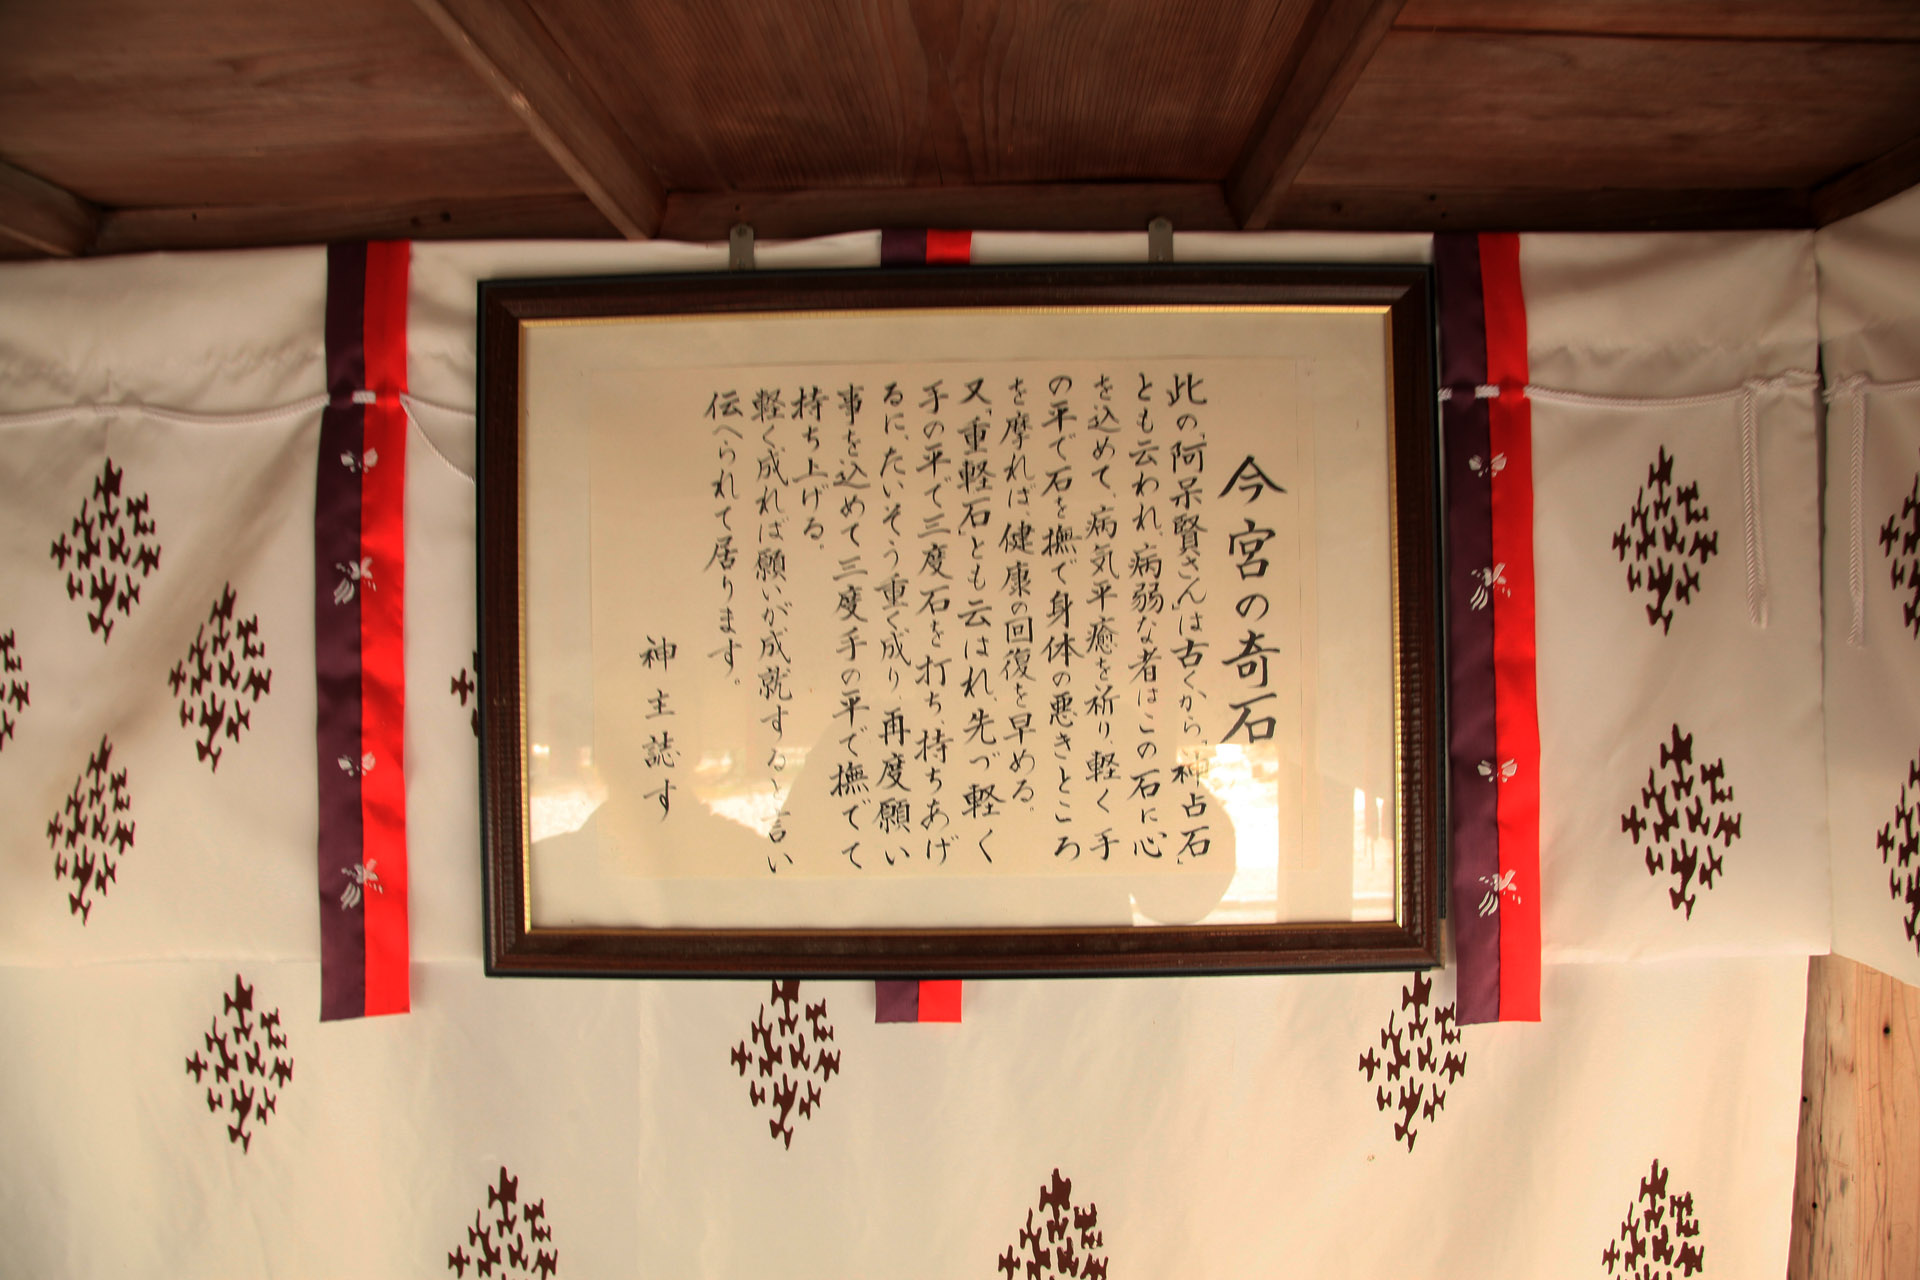 今宮の奇石
此の「阿呆賢さん」は古くから、「神占石」
とも云われ、病弱な者はこの石に心
を込めて、病気平癒を祈り、軽く手
の平で石を撫で身体の悪きところ
を摩れば、健康の回復を早める。
又「重軽石」とも云はれ、先づ軽く
手の平で三度石を打ち、持ちあげ
るに、たいそう重く成り、再度願い
事を込めて三度手の平で撫でて
持ち上げる。
軽く成れば願いが成就すると言い
伝へられて居ります。
神主誌す